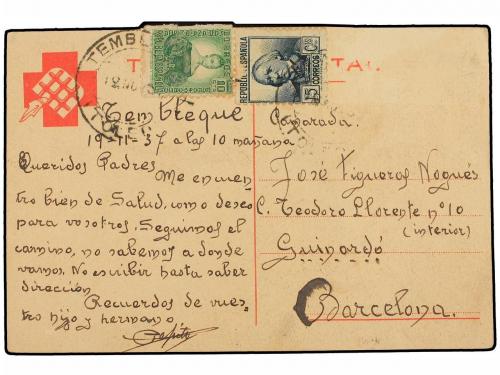 TEMBL
TOLED
10
REPUBLICA ESPAÑOLA
15 CTS
CORREOS
TAL
Tembleque
19-11-37 a las 10 mañana
Queridos Padres
Me encuen
tro bien de Salud, como deseo
para vosotros. Seguimos el
camino, no sabemos a donde
vamos. No escribir hasta saber
dirección
Recuerdos de vues
tro hijo y hermano
Pepito
Camarada.
José Figueros Nogués
C. Teodoro Llorente nº 10
(interior)
Guinardó
Barcelona.